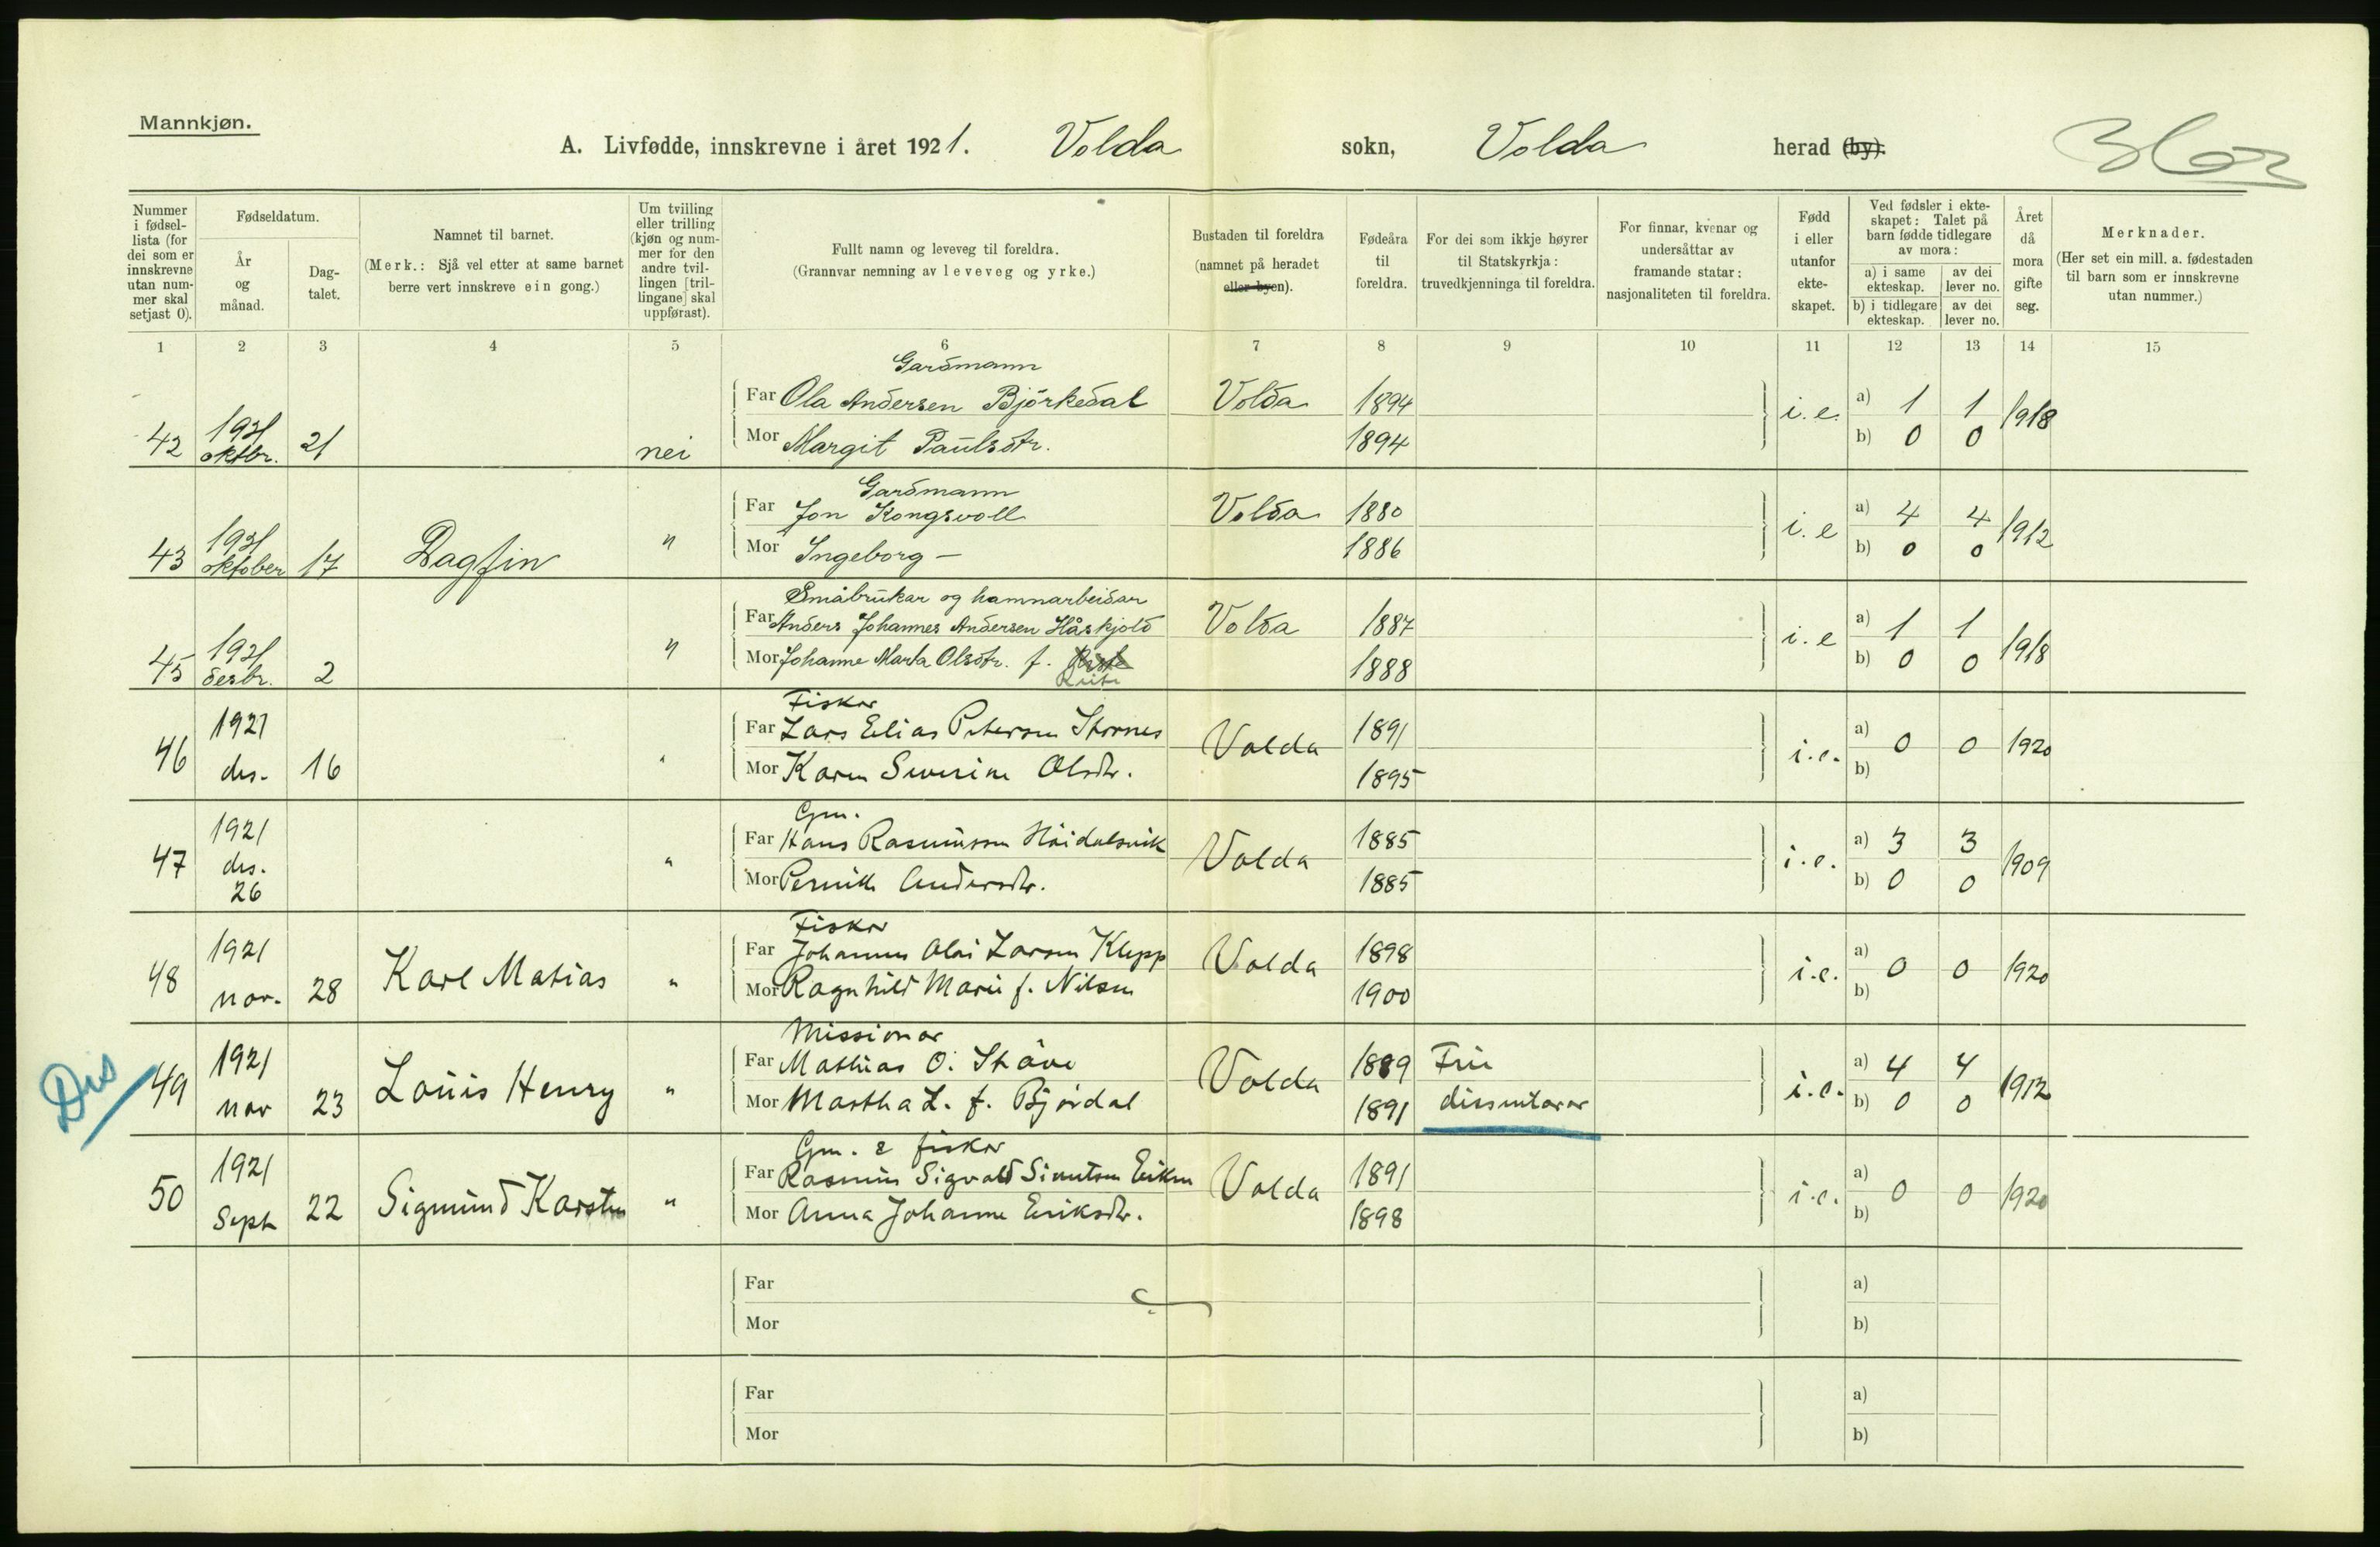 Mannkjøn.
A. Livfødde, innskrevne i året 1921. Volda sokn, Volda herad (by).
Nummer i fødsel-lista (for dei som er innskrevne utan num-mer skal setjast 0).
Fødseldatum.
År og månad.
Dag-talet.
Namnet til barnet.
(Merk.: Sjå vel etter at same barnet berre vert innskreve ein gong.)
Um tvilling eller trilling (kjøn og num-mer for den andre tvil-lingen [tril-lingane] skal uppførast).
Fullt namn og leveveg til foreldra.
(Grannvar nemning av leveveg og yrke.)
Bustaden til foreldra (namnet på heradet eller byen).
Fødeåra til foreldra.
For dei som ikkje høyrer til Statskyrkja: truvedkjenninga til foreldra.
For finnar, kvenar og undersåttar av framande statar: nasjonaliteten til foreldra.
Fødd i eller utanfor ekte-skapet.
Ved fødsler i ekte-skapet: Talet på barn fødde tidlegare av mora:
a) i same ekteskap. av dei lever no.
b) i tidlegare ekteskap. av dei lever no.
Året då mora gifte seg.
Merknader.
(Her set ein mill. a. fødestaden til barn som er innskrevne utan nummer.)
1 2 3 4 5 6 7 8 9 10 11 12 13 14 15
Gardmann
Far Ola Andersen Björkedal Volda 1894 i.e. a) 1 1 1918
42 1921 oktbr. 21 nei Mor Margit Paulsdtr. 1894 b) 0 0
Gardmann
Far Jon Kongsvoll Volda 1880 i.e a) 4 4 1912
43 1921 oktober 17 Dagfin " Mor Ingeborg — 1886 b) 0 0
Småbrukar og hamnarbeidar
Far Anders Johannes Andersen Håskjold Volda 1887 i.e a) 1 1 1918
45 1921 desbr. 2 " Mor Johanne Marta Olsdtr. f. 1888 b) 0 0
Fisker
Far Lars Elias Petersen Störnes Volda 1891 i.e. a) 0 0 1920
46 1921 des. 16 " Mor Karen Severine Olsdtr. 1895 b)
Gm.
Far Hans Rasmussen Höidalsvik Volda 1885 i.e. a) 3 3 1909
47 1921 des. 26 " Mor Pernille Andersdtr. 1885 b) 0 0
Fisker
Far Johannes Olai Larsen Klepp Volda 1898 i.e. a) 0 0 1920
48 1921 nov. 28 Karl Matias " Mor Ragnhild Marie f. Nilsen 1900 b)
Missionær
Far Mathias O. Stave Volda 1889 Frie i.e. a) 4 4 1912
Dis 49 1921 nov 23 Louis Henry " Mor Martha L. f. Bjørdal 1891 dissentarar b) 0 0
Gm. & fisker
Far Rasmus Sigvald Sivertsen Eiksen Volda 1891 i.e. a) 0 0 1920
50 1921 Sept 22 Sigmund Karsten " Mor Anna Johanne Eriksdtr. 1898 b)
Far a)
Mor b)
Far a)
Mor b)